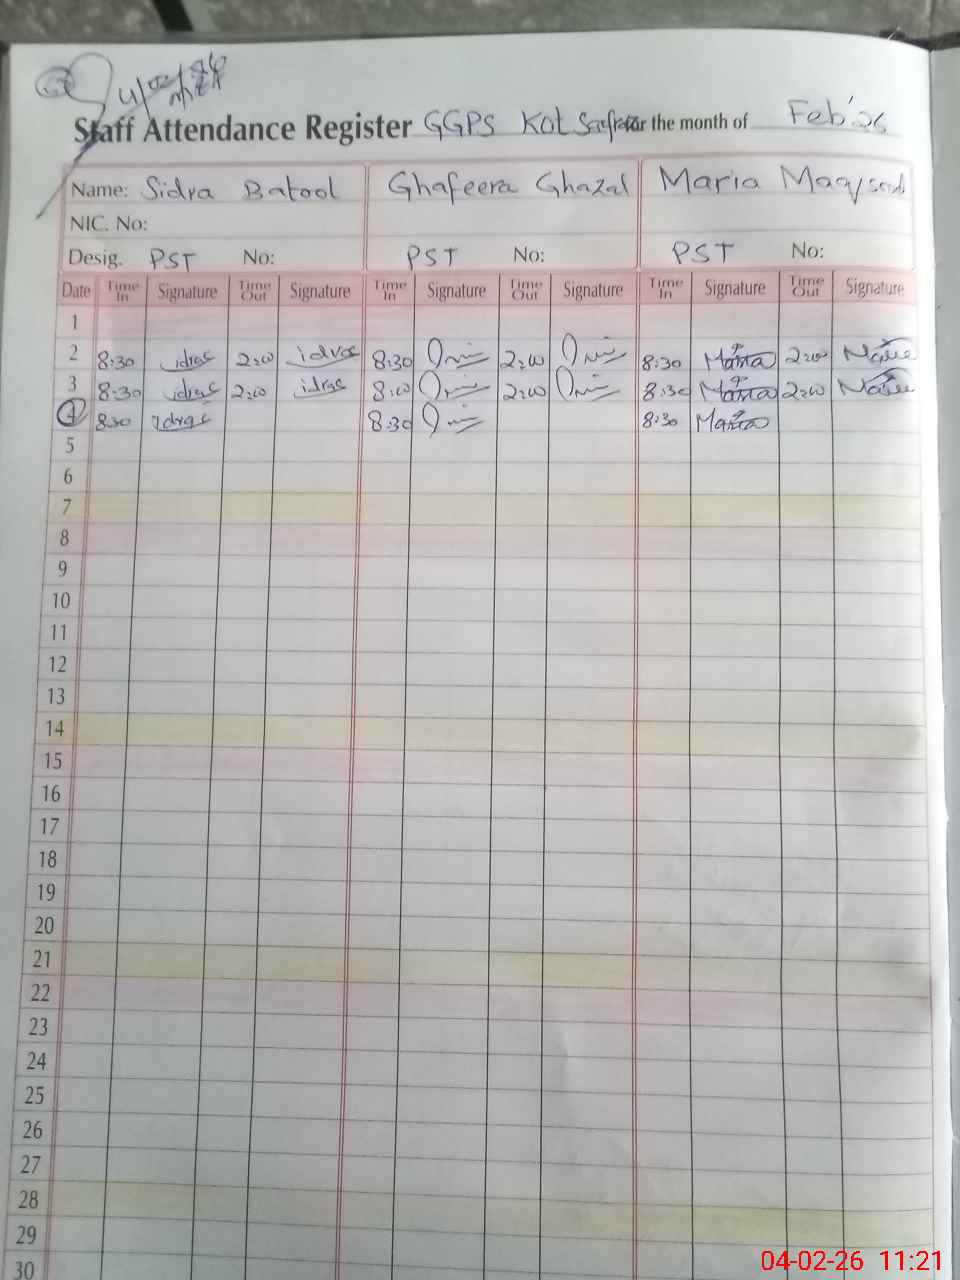 Staff Attendance Register GGPS Kot for the month of Feb'26
Name: Sidra Batool Ghafeera Ghazal Maria Maqsood
NIC. No:
Desig. PST No: PST No: PST No:
Date Time In Signature Time Out Signature Time In Signature Time Out Signature Time In Signature Time Out Signature
1
2 8:30 idrac 2:00 idrac 8:30 2:00 8:30 Maria 2:00 Maria
3 8:30 idrac 2:00 idrac 8:00 2:00 8:30 Maria 2:00 Maria
4 830 idrac 8:30 8:30 Maria
5
6
7
8
9
10
11
12
13
14
15
16
17
18
19
20
21
22
23
24
25
26
27
28
29
30
04-02-26 11:21